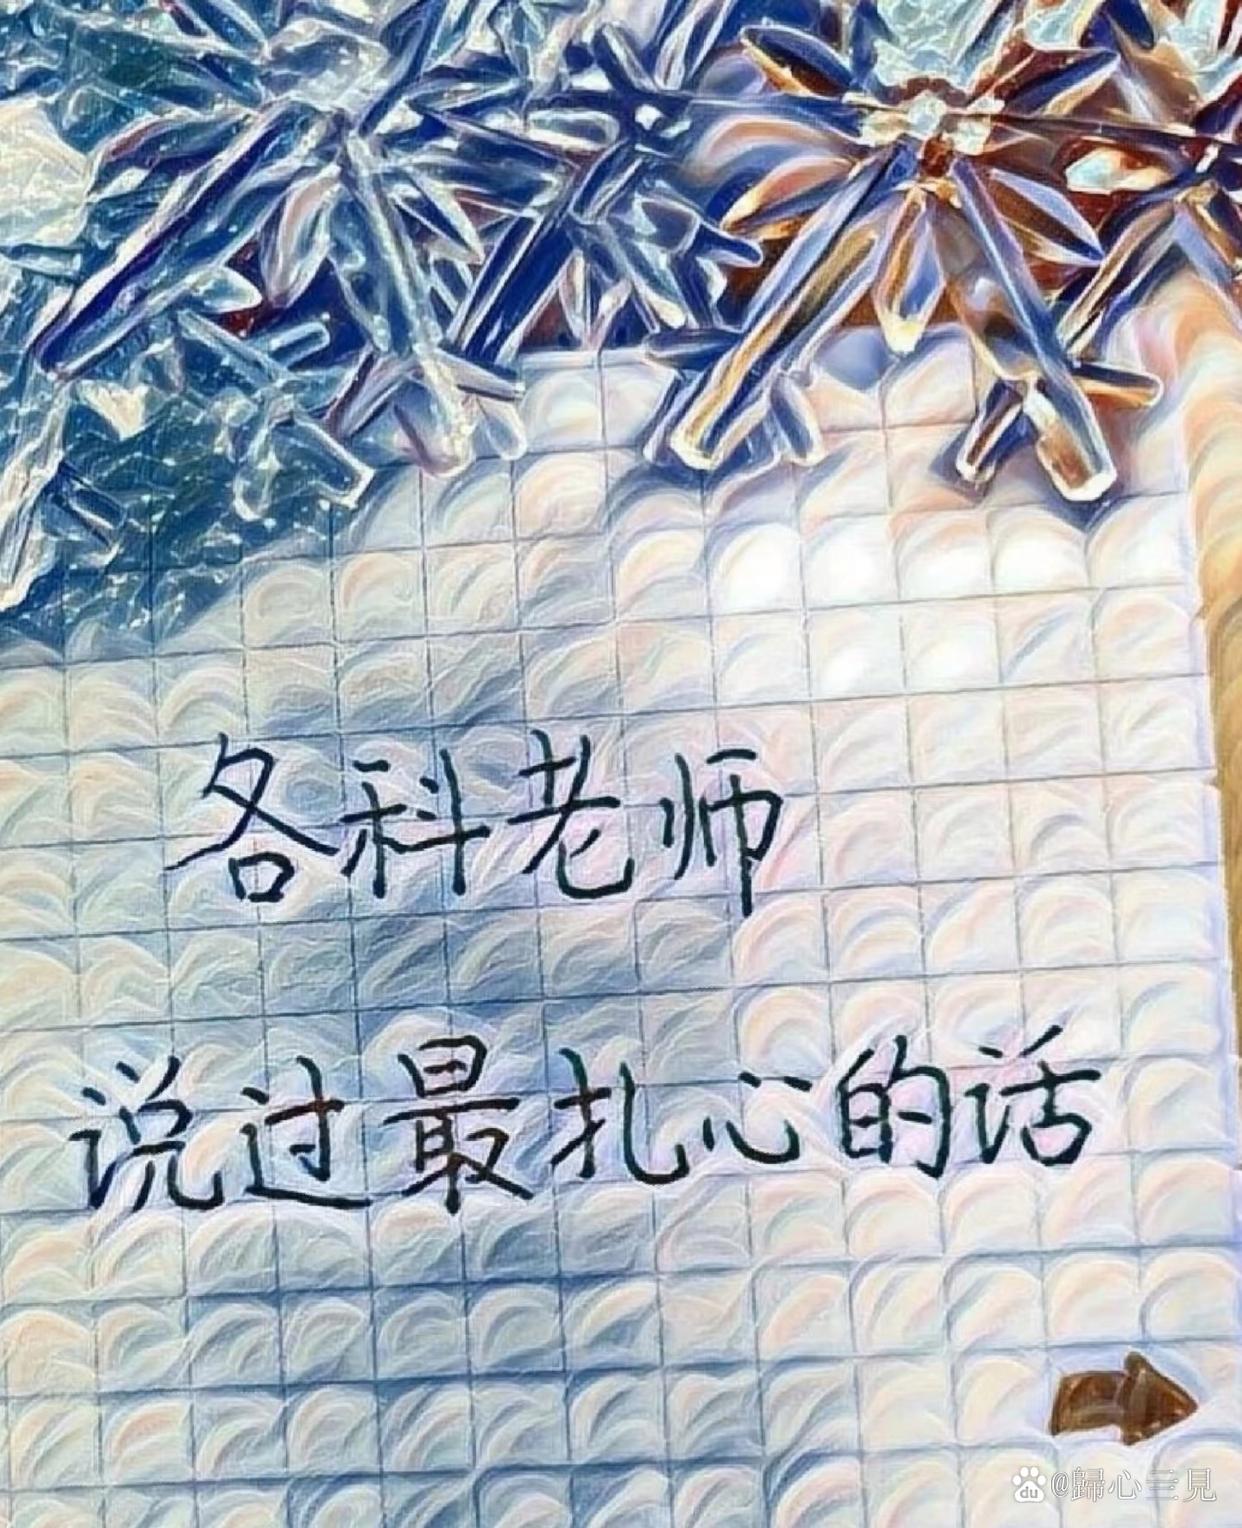 各科老师
说过最扎心的话
du @歸心三見